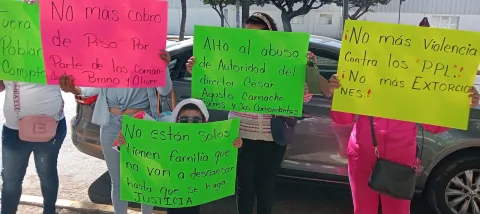 Fuera
Poblan
No más cobro
de Piso Por
Parte de los coman
Bruno y Oliver
Alto al abuso
de Autoridad del
director Cesar
Agusto Camacho
y sus Comandantes
¡No más Violencia
Contra los "PPL"!
¡No más EXTORCIO
NES!
No están Solos
tienen familia que
no van a descansar
hasta que se haga
JUSTICIA